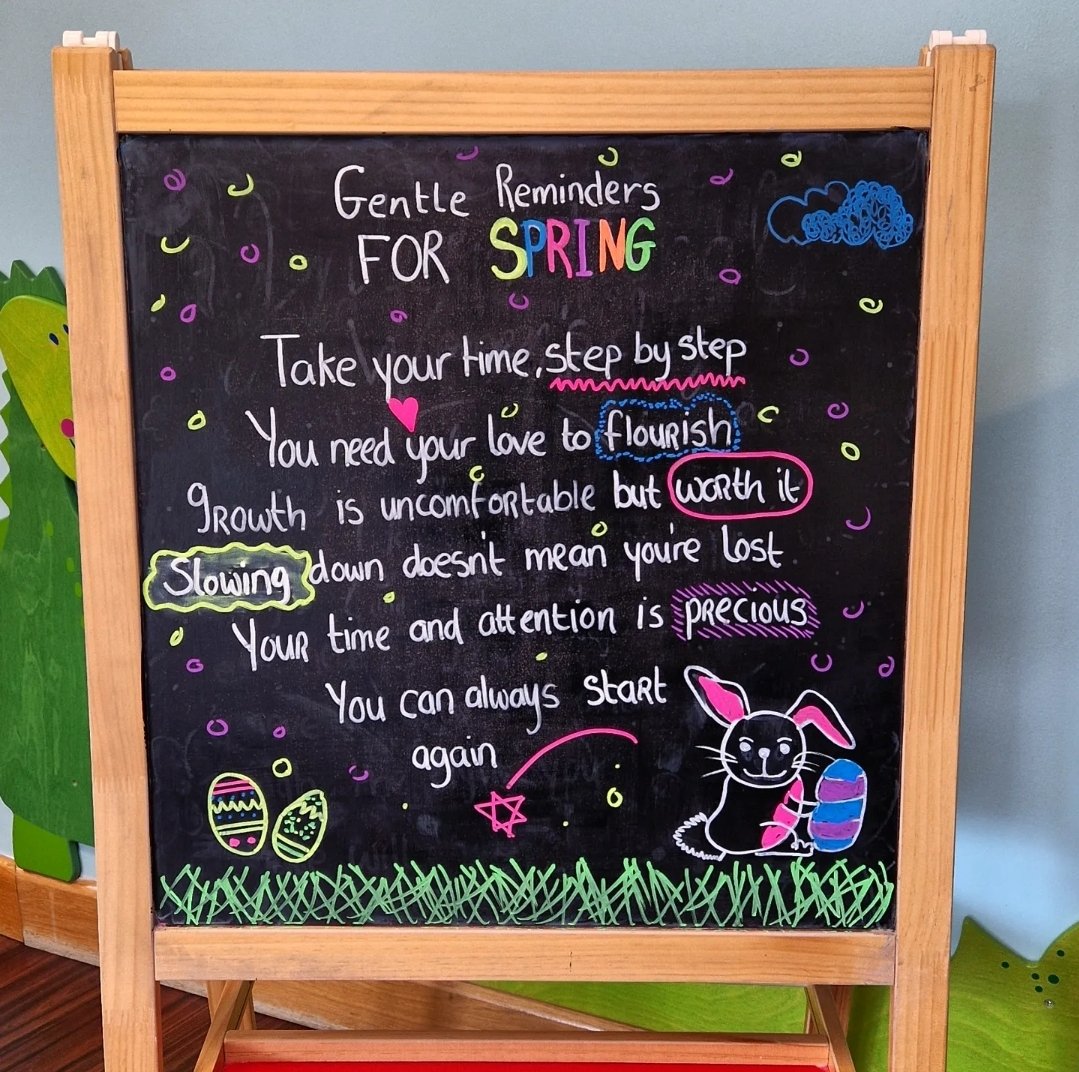 Gentle Reminders
FOR SPRING
Take your time, step by step
You need your love to flourish
growth is uncomfortable but worth it
Slowing down doesn't mean you're lost
Your time and attention is precious
You can always start
again